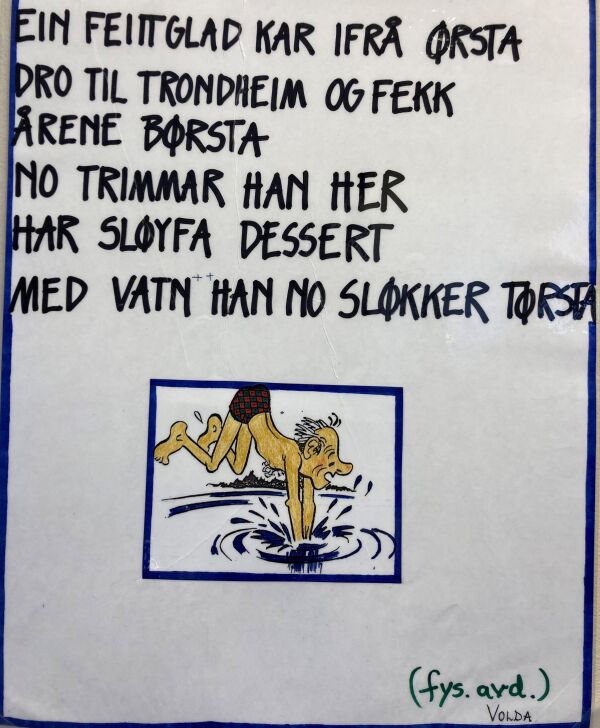 EIN FEITTGLAD KAR IFRÅ ØRSTA
DRO TIL TRONDHEIM OG FEKK
ÅRENE BØRSTA
NO TRIMMAR HAN HER
HAR SLØYFA DESSERT
MED VATN HAN NO SLØKKER TØRSTA
(fys. avd.)
VOLDA